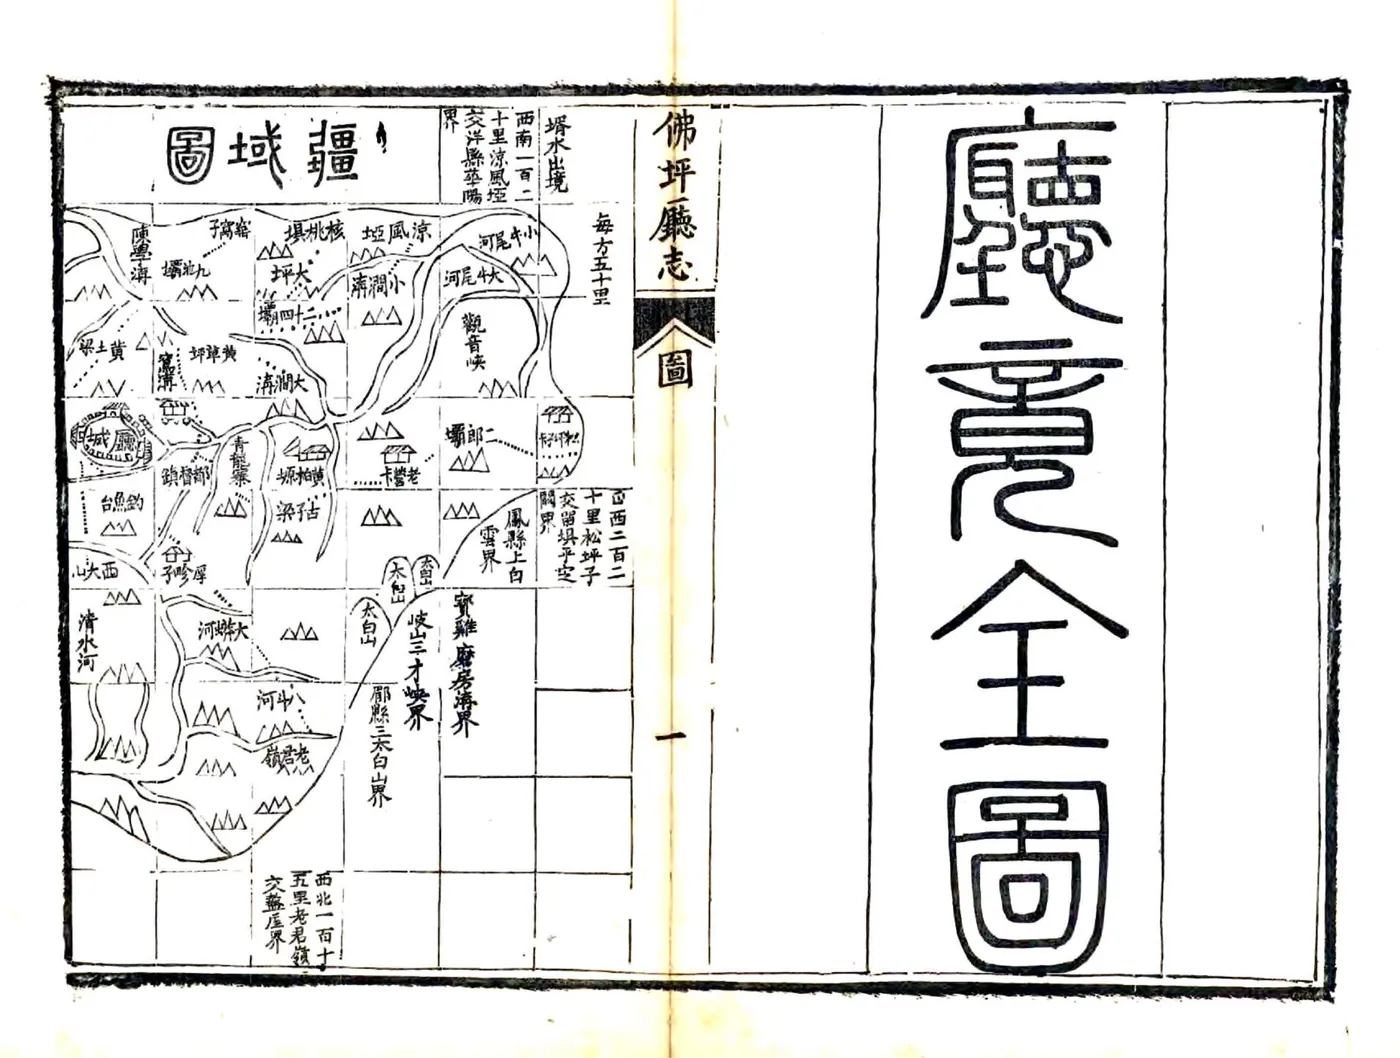 廳竟全圖
佛坪廳志
圖
一
疆域圖
每方五十里
壻水出境
西南一百二
十里涼風埡
交洋縣華陽
界
小牛尾河
大牛尾河
觀音峽
涼風埡
小澗溝
核桃埧
大坪
二十四壩
大澗溝
窩子
九池壩
黃草坪
黃土梁
廳城
都督鎮
青龍寨
黃柏塬
古子梁
老營卡
二郎壩
釣魚台
西大山
厚畛子
清水河
大蟒河
八斗河
老君嶺
太白山
太白山
太白山
正西二百二
十里松坪子
交留埧平定
關界
鳳縣上白
雲界
寶雞磨房溝界
岐山三才峽界
郿縣三太白山界
西北一百十
五里老君嶺
交盩厔界